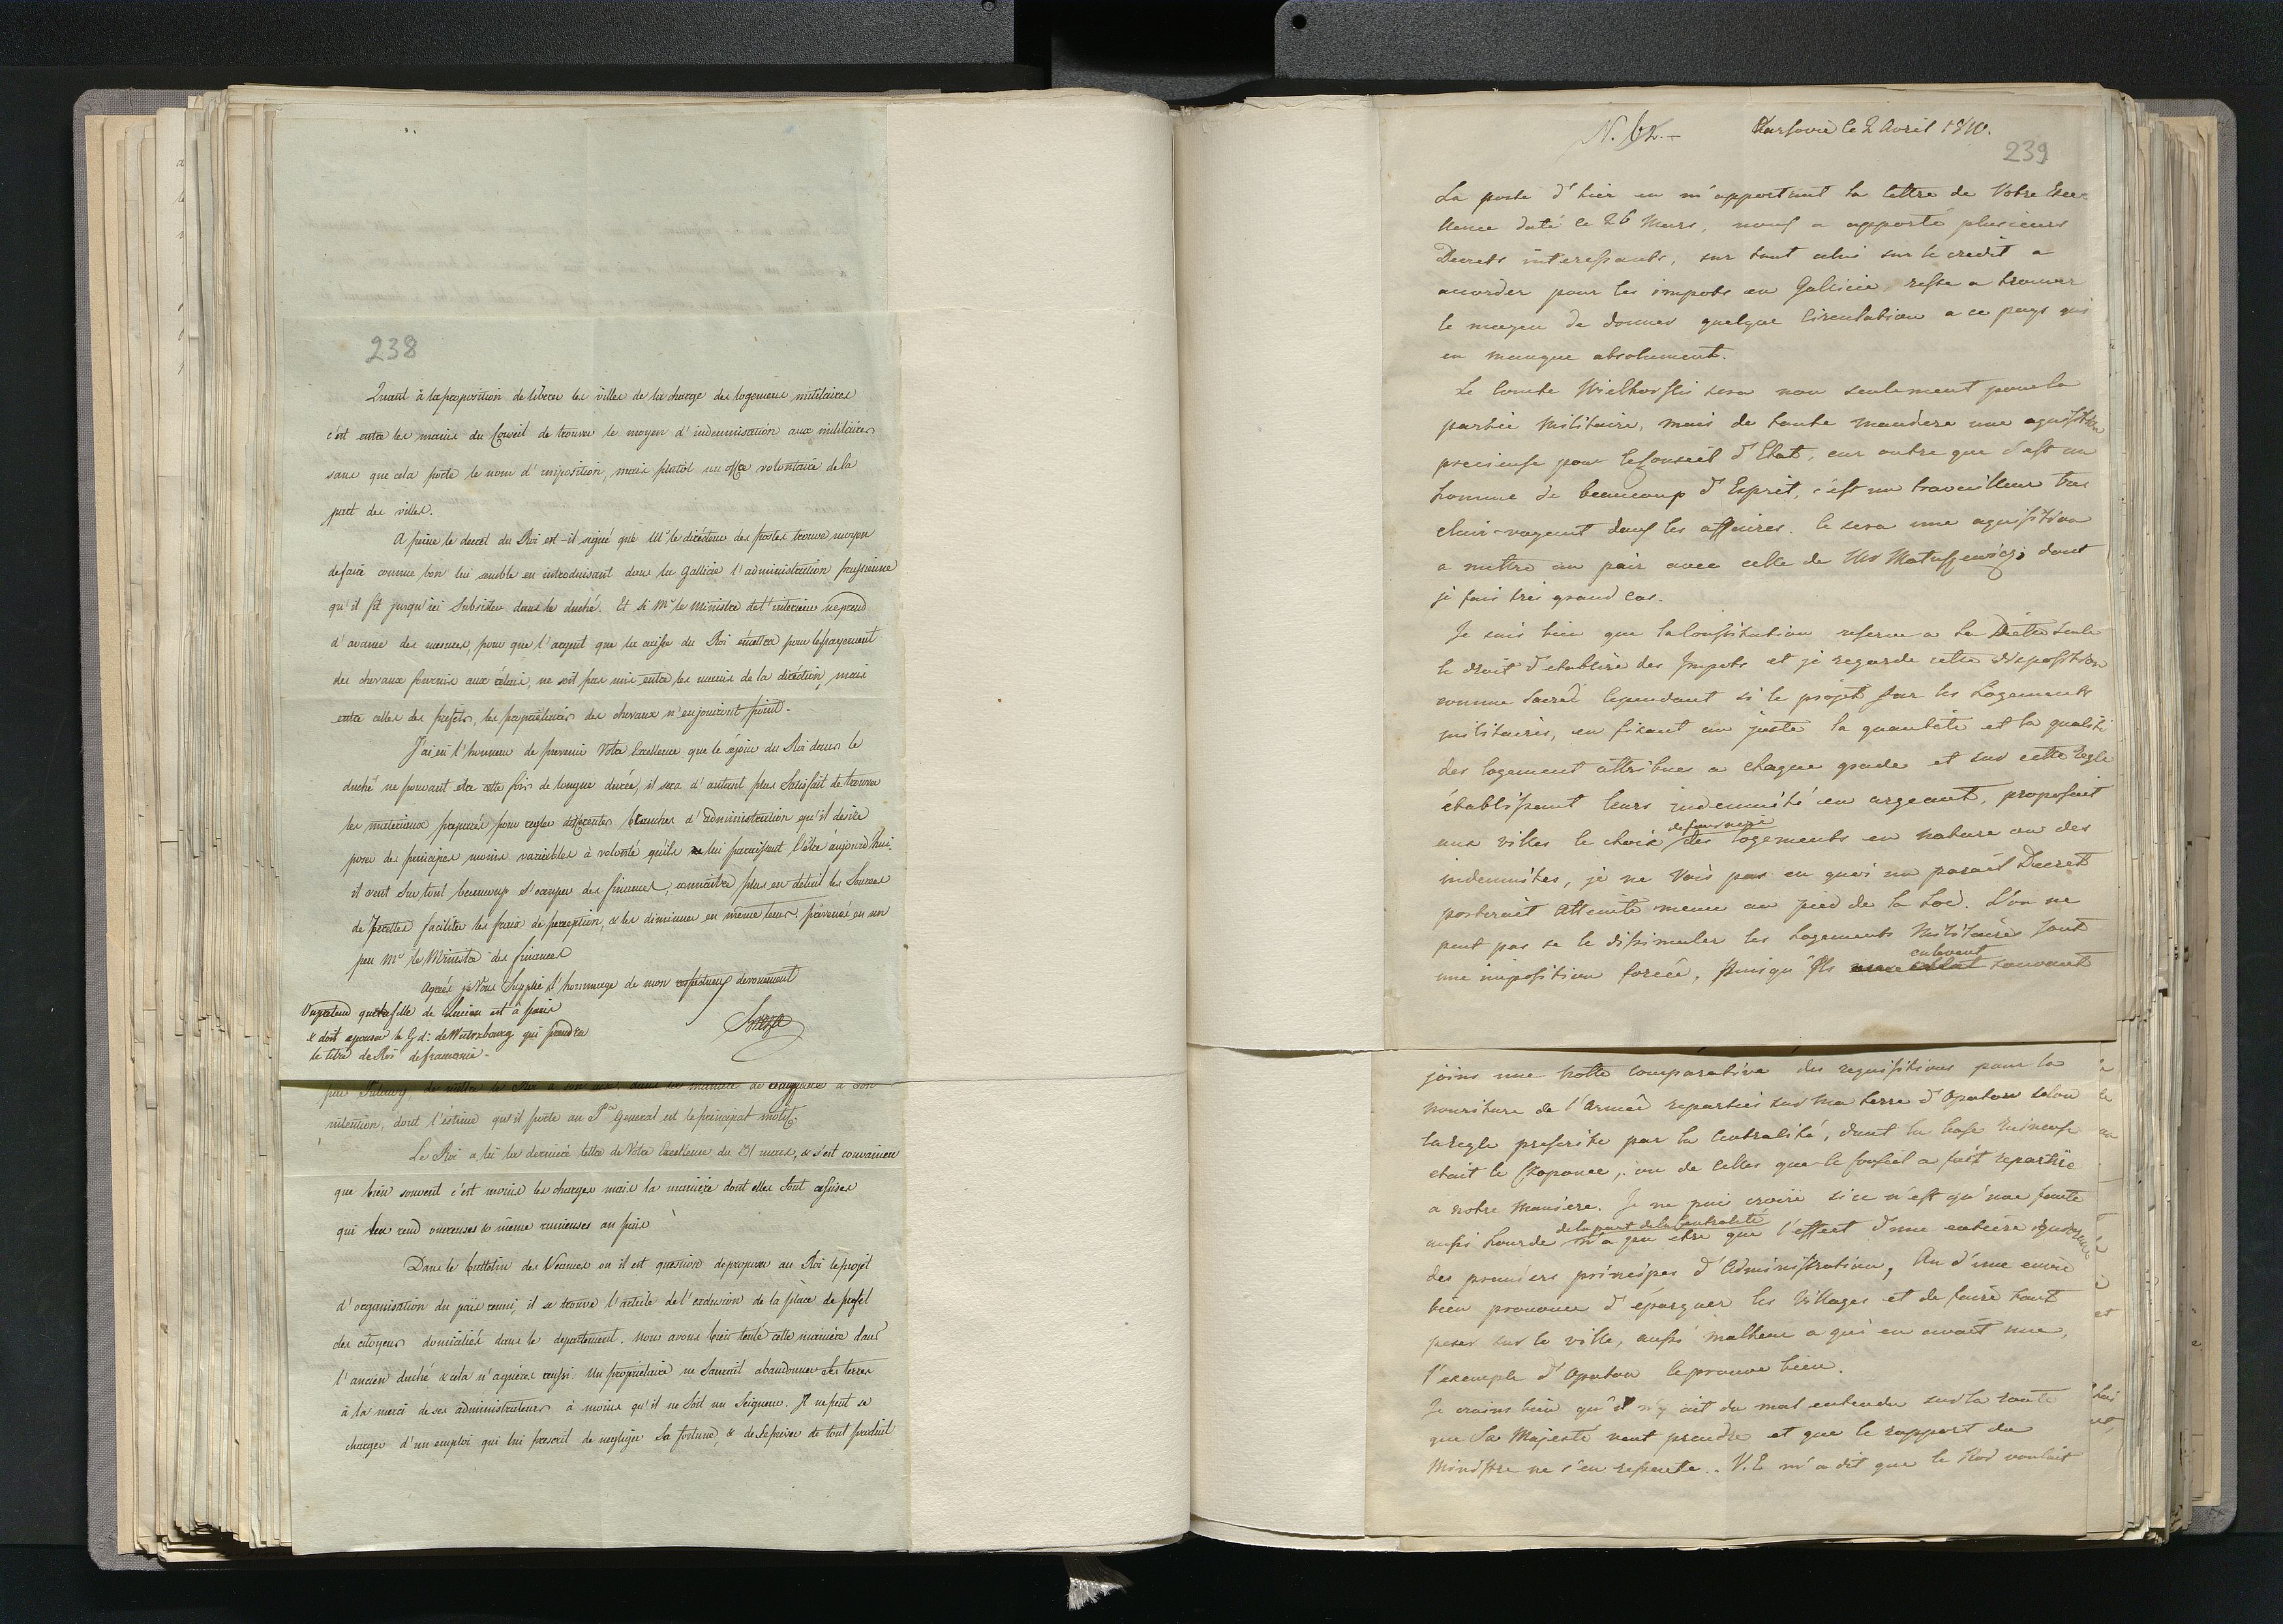 238
Quant à la proposition de libérer les villes de la charge des logemens militaires
c'est entre les mains du Conseil de trouver le moyen d'indemnisation aux militaires
sans que cela porte le nom d'imposition, mais plutôt un offre volontaire de la
part des villes.
A peine le decret du Roi est-il signé que Mr le directeur des postes trouve moyen
defaire comme bon lui semble en introduisant dans la Gallicie l'administration prussienne
qu'il fit jusqu'ici subsister dans le duché. Et si Mr le Ministre de l'interieur ne prend
d'avance des mesures, pour que l'argent que la caisse du Roi émettra pour le payement
des chevaux fournis aux rélais, ne soit pas mis entre les mains de la diréction, mais
entre celles des prefets, les proprietaires des chevaux n'en jouiront point.
J'ai eû l'honneur de prevenir Votre Excellence que le séjour du Roi dans le
duché ne pouvant etre cette fois de longue durée, il sera d'autant plus Satisfait de trouver
les materiaux preparés pour regler differentes branches d'administration qu'il desire
poser des principes moins variables à volonté qu'ils ne lui paraissent l'être aujourd'hui.
il veut sur tout beaucoup s'occuper des finances, connaitre plus en detail les Sources
de recettes faciliter les fraix de perception, & les diminuer en même tems. prevenés en un
peu Mr le Ministre des finances
Agréés je Vous Supplie l'hommage de mon respectueux devouement
On prétend que la fille de Lucien est à paris
& doit epouser le G. d: de Wurzbourg qui prendra
le titre de Roi de franconie.
intention, dont l'éstime qu'il porte au Pce General est le principal motif.
Le Roi a lû la dernière lettre de Votre Excellence du 21 mars, & s'est convaincu
que bien souvent c'est moins les charges mais la manière dont elles sont assises
qui les rend onereuses & même ruineuses au païs
Dans le bulletin des Séances ou il est question de proposer au Roi le projet
d'organisation du païs reuni, il se trouve l'article de l'exclusion de la place de prefet
des citoyens domiciliés dans le departement. nous avons bien tenté cette manière dans
l'ancien duché & cela n'a guères reussi. Un proprietaire ne Saurait abandonner Ses terres
à la merci de ses administrateurs à moins qu'il ne Soit un Seigneur. Il ne peut se
charger d'un emploi qui lui prescrit de negliger Sa fortune, & de se priver de tout produit
N. 62.- Varsovie le 2 Avril 1810.
239
La poste d'hier en m'apportant la lettre de Votre Exce-
llence daté le 26 Mars, nous a apporté plusieurs
Decrets interessants, sur tout celui sur le credit a
accorder pour les impots en Gallicie, reste a trouver
le moyen de donner quelque Circulation a ce pays qui
en manque absolument.
Le Comte Wielhorski sera non seulement pour la
partie Militaire, mais de toute maniere une aquisition
precieuse pour le Conseil d'Etat, car outre que c'est un
homme de beaucoup d'Esprit, c'est un travailleur tres
clair-voyant dans les affaires. Ce sera une aquisition
a mettre au pair avec celle de Mr Matuszewicz, dont
je fais tres grand cas.
Je sais bien que la Constitution reserve a la Diete seule
le droit d'etablire des Impots et je regarde cette disposition
comme Sacrée Cependant si le projet sur les Logements
militaires, en fixant au juste la quantité et la qualité
des logement attribues a chaque grade et sur cette regle
établissant leurs indemnité en argeant, proposait
aux villes le choix defournire des logements en nature ou des
indemnites, je ne Vois pas en quoi un pareil Decret
porterait Atteinte meme au pied de la Loi. L'on ne
peut pas se le dissimuler les Logements Militaires sont
une imposition forcée, puisqu'ils enlevent souvent
joins une Notte Comparative des requisitions pour la
nouriture de l'Armée reparties sur ma terre d'Opatow selon
la regle prescrite par la Centralité, dont la base ruineuse
etait le Czopowe, ou de celles que le Conseil a fait repartire
a notre maniere. Je ne puis croire si ce n'est qu'une faute
aussi lourde de la part de la Centralité n'a peu etre que l'effect d'une entiere ignorence
des premiers principes d'Administration, Ou d'une envie
bien prononcé d'épargner les Villages et de faire tout
peser sur la ville, aussi malheur a qui en avait une,
l'exemple d'Opatow le prouve bien.
Je crains bien qu'il n'y ait du mal entendu sur la route
que Sa Majesté veut prendre et que le rapport du
Ministre ne s'en ressente. V.E m'a dit que le Roi voulait